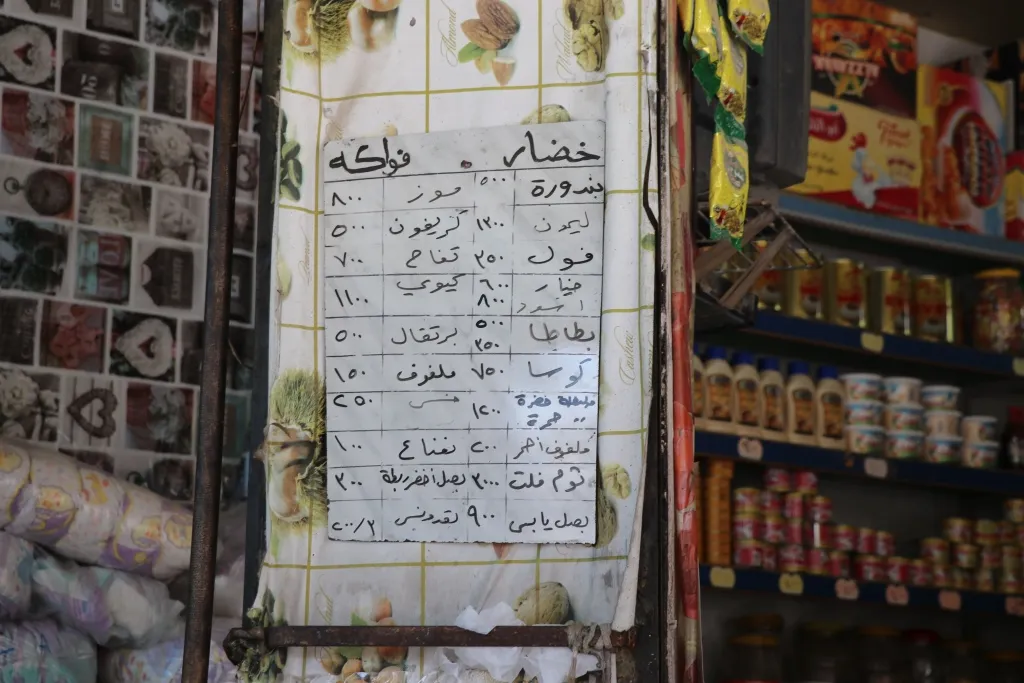 خضار . فواكه
بندورة ٥٠٠ موز ٨٠٠
ليمون ١٢٠٠ كريفون ٥٠٠
فول ٣٥٠ تفاح ٧٠٠
خيار ٦٠٠ كيوي ١١٠٠
اسود ٨٠٠
بطاطا ٥٠٠ ٣٥٠ برتقال ٥٠٠
كوسا ٧٥٠ ملفوف ١٥٠
فليفلة خضرة ١٢٠٠ خس ٢٥٠
" " حمرة
ملفوف احمر ٢٠٠ نعناع ١٠٠
ثوم فلت ٣٠٠٠ بصل اخضر ربطة ٣٠٠
بصل يابس ٩٠٠ بقدونس ٢٠٠/٣
Almond